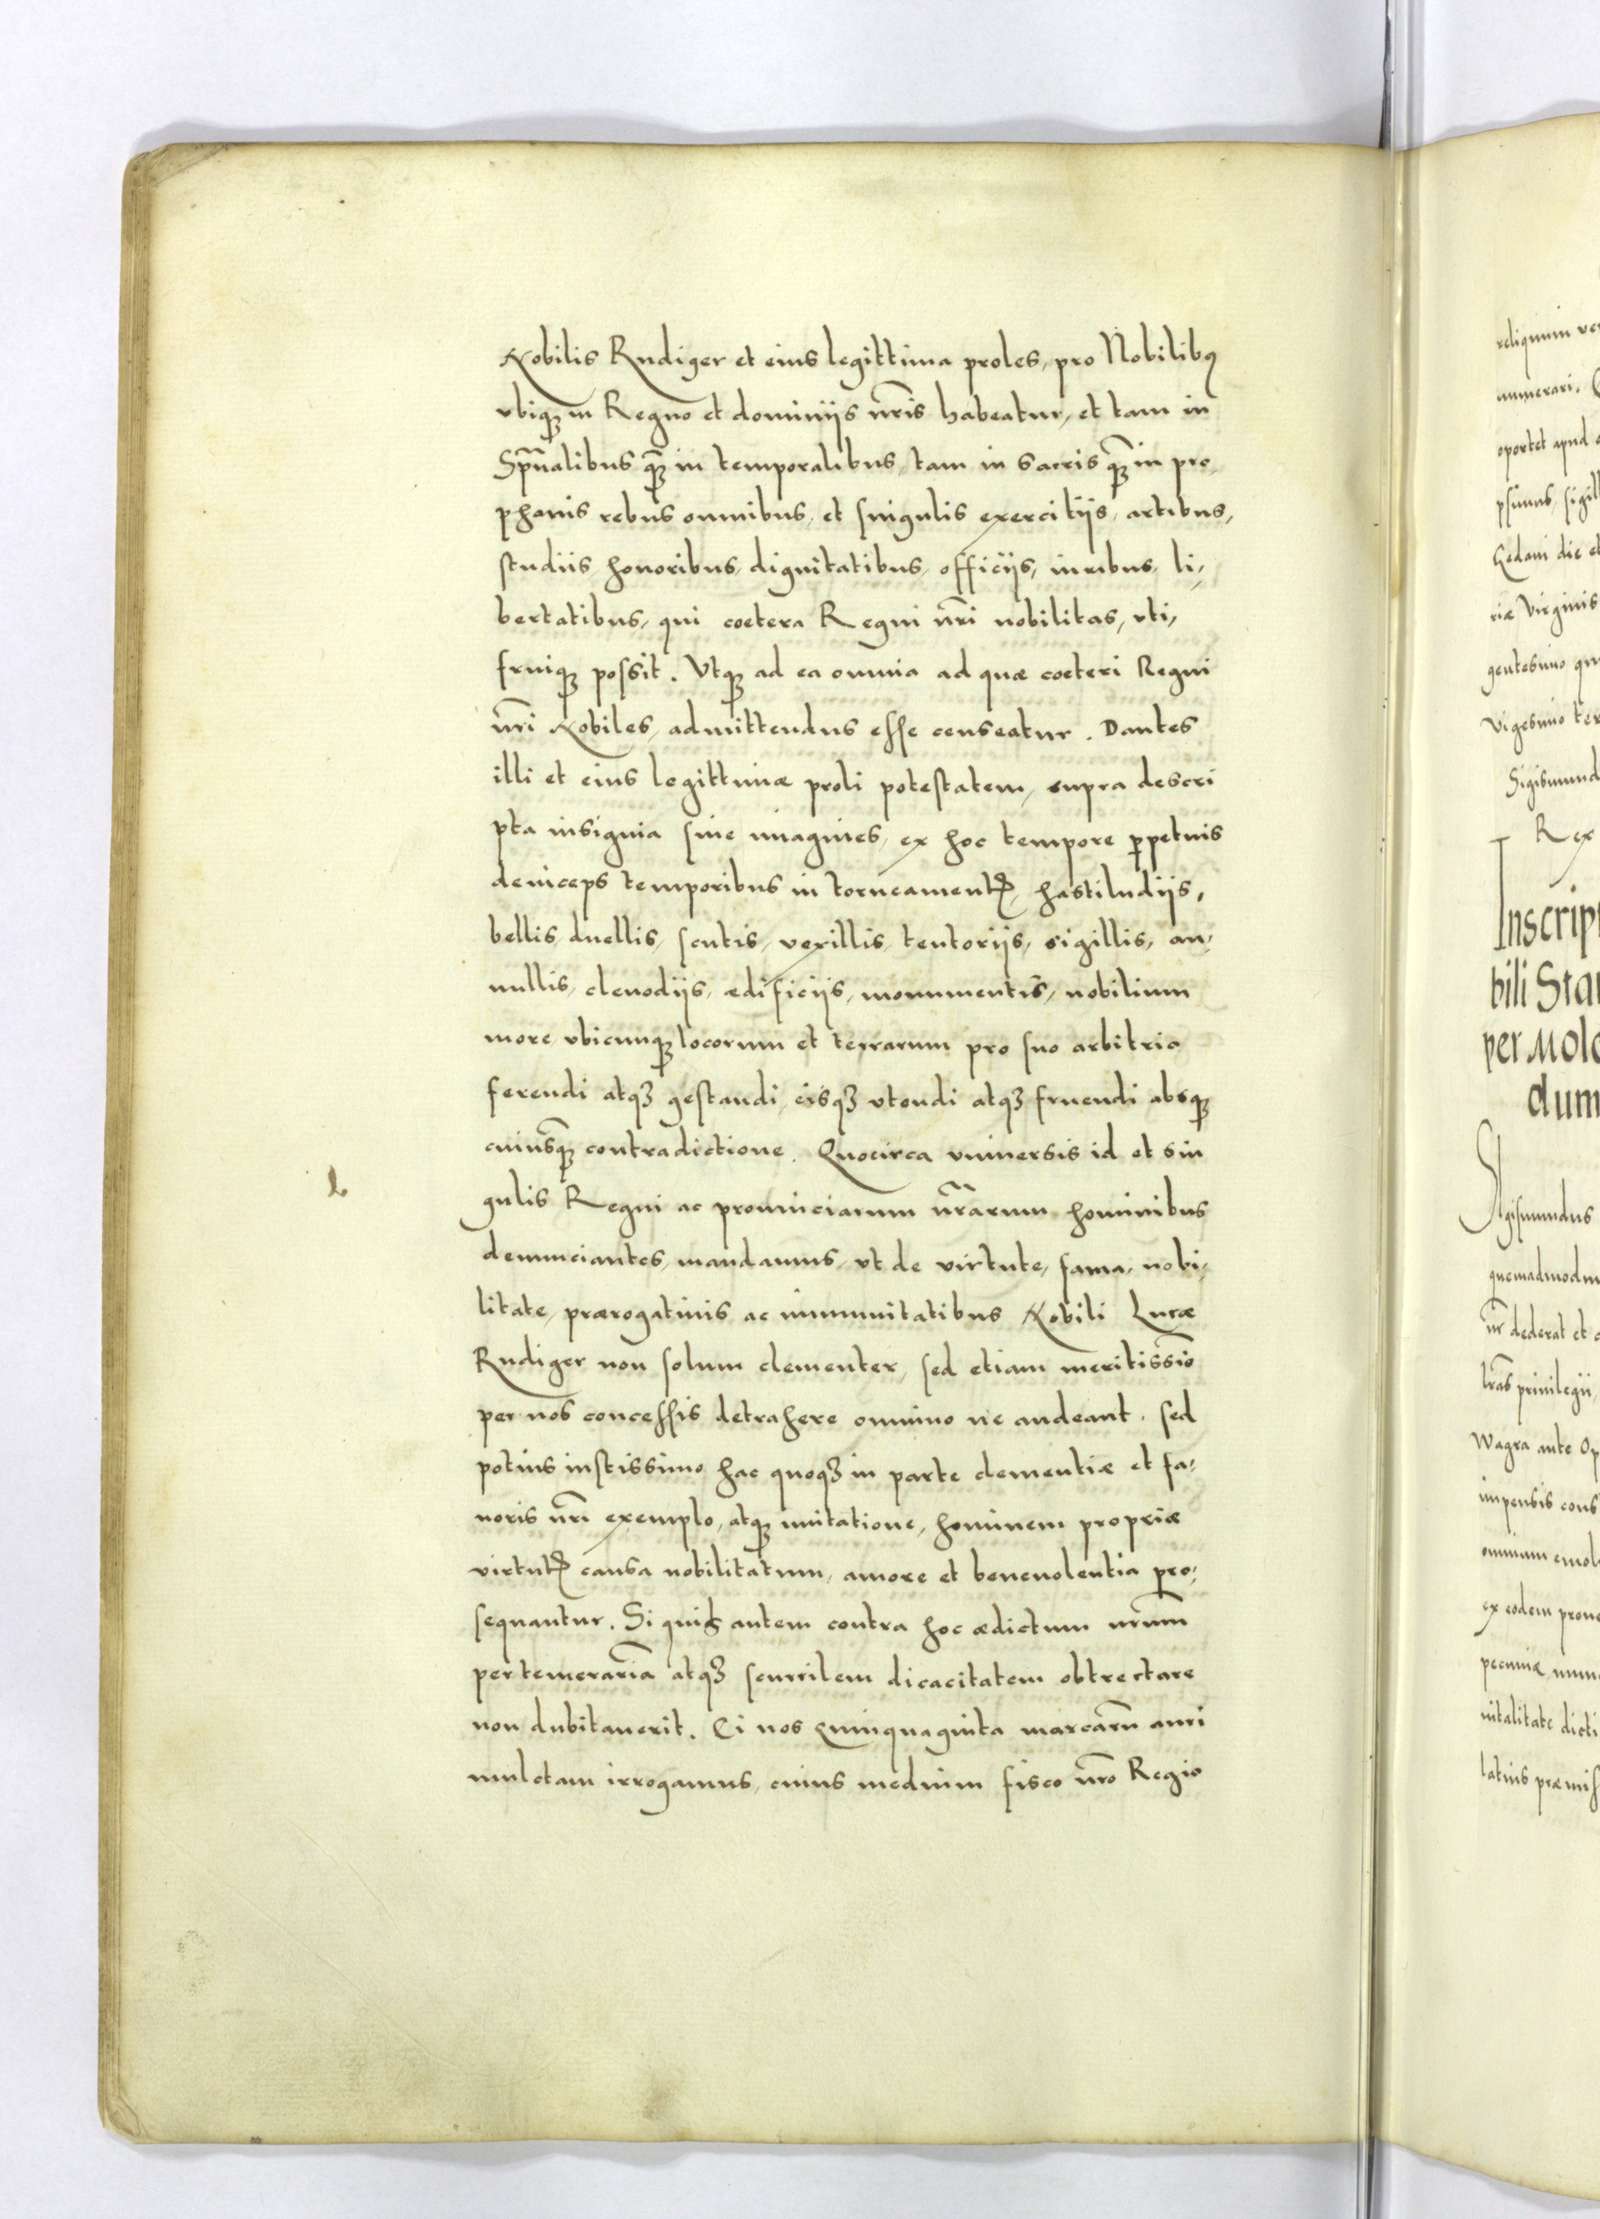 Nobilis Rudiger et eius legittima proles, pro Nobilibq
vbiqȝ in Regno et dominijs nr̃is habeatur, et tam in
Spũalibus qȝ̃ in temporalibus, tam in sacris qȝ̃ in pro-
phanis rebus omnibus, et singulis exercitijs, artibus,
studiis, honoribus, dignitatibus, officijs, iuribus, li-
bertatibus, qui coetera Regni nr̃i nobilitas, vti,
fruiqȝ possit. Vtqȝ ad ea omnia ad quæ coeteri Regni
nr̃i Nobiles, admittendus esse censeatur. Dantes
illi et eius legittimæ proli potestatem, supra descri
pta insignia siue imagines, ex hoc tempore ꝑpetuis
deinceps temporibus in torneamentꝭ, hastiludijs,
bellis, duellis, scutis, vexillis, tentorijs, sigillis, an-
nullis, clenodijs, ædificijs, monumentis, nobilium
more vbicunqȝ locorum et terrarum pro suo arbitrio
ferendi atqȝ gestandi, eisqȝ vtendi atqȝ fruendi absqȝ
cuiusqȝ̃ contradictione. Quocirca vniuersis id et sin
gulis Regni ac prouinciarum nr̃arum hominibus
denunciantes, mandamus, vt de virtute, fama, nobi-
litate, prærogatiuis ac immunitatibus Nobili Lucæ
Rudiger non solum clementer, sed etiam meritissĩo
per nos concessis detrahere omnino ne audeant. sed
potius iustissimo hac quoqȝ in parte clementiæ et fa-
uoris nr̃i exemplo, atqȝ imitatione, hominem propriæ
virtutꝭ causa nobilitatum, amore et beneuolentia pro-
sequantur. Si quis autem contra hoc ædictum nr̃um
per temerariã atqȝ scurrilem dicacitatem obtrectare
non dubitauerit. Ei nos Quinquaginta marcarũ auri
mulctam irrogamus, cuius medium fisco nr̃o Regio
b
numerari.
Virginis
Sigismund
Rex
Inscript
bili Sta
per Molo
dum
Sigismundus
quemadmodu
nr̃ dederat et
lr̃as priuilegii
Wagra ante Op
impensis cons
omnium emol
ex eodem proue
vitalitate dicti